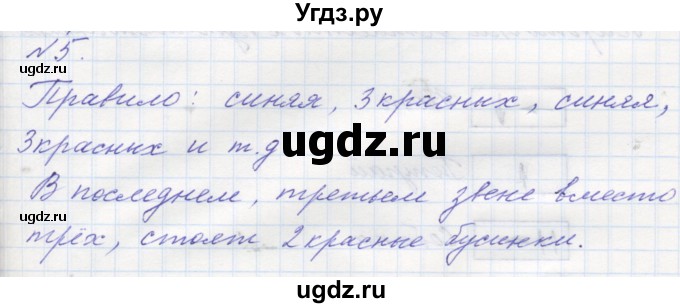 Угдз.ру
№5.
ugdz.ru
ugdz.ru
Правило: синяя, 3красных, синяя,
3красных и т.д
ugdz.ru
ugdz.ru
ugdz.ru
В последнем, третьем звене вместо
трёх, стоят 2красные бусинки.
ugdz.ru
ugdz.ru
Угдз.ру